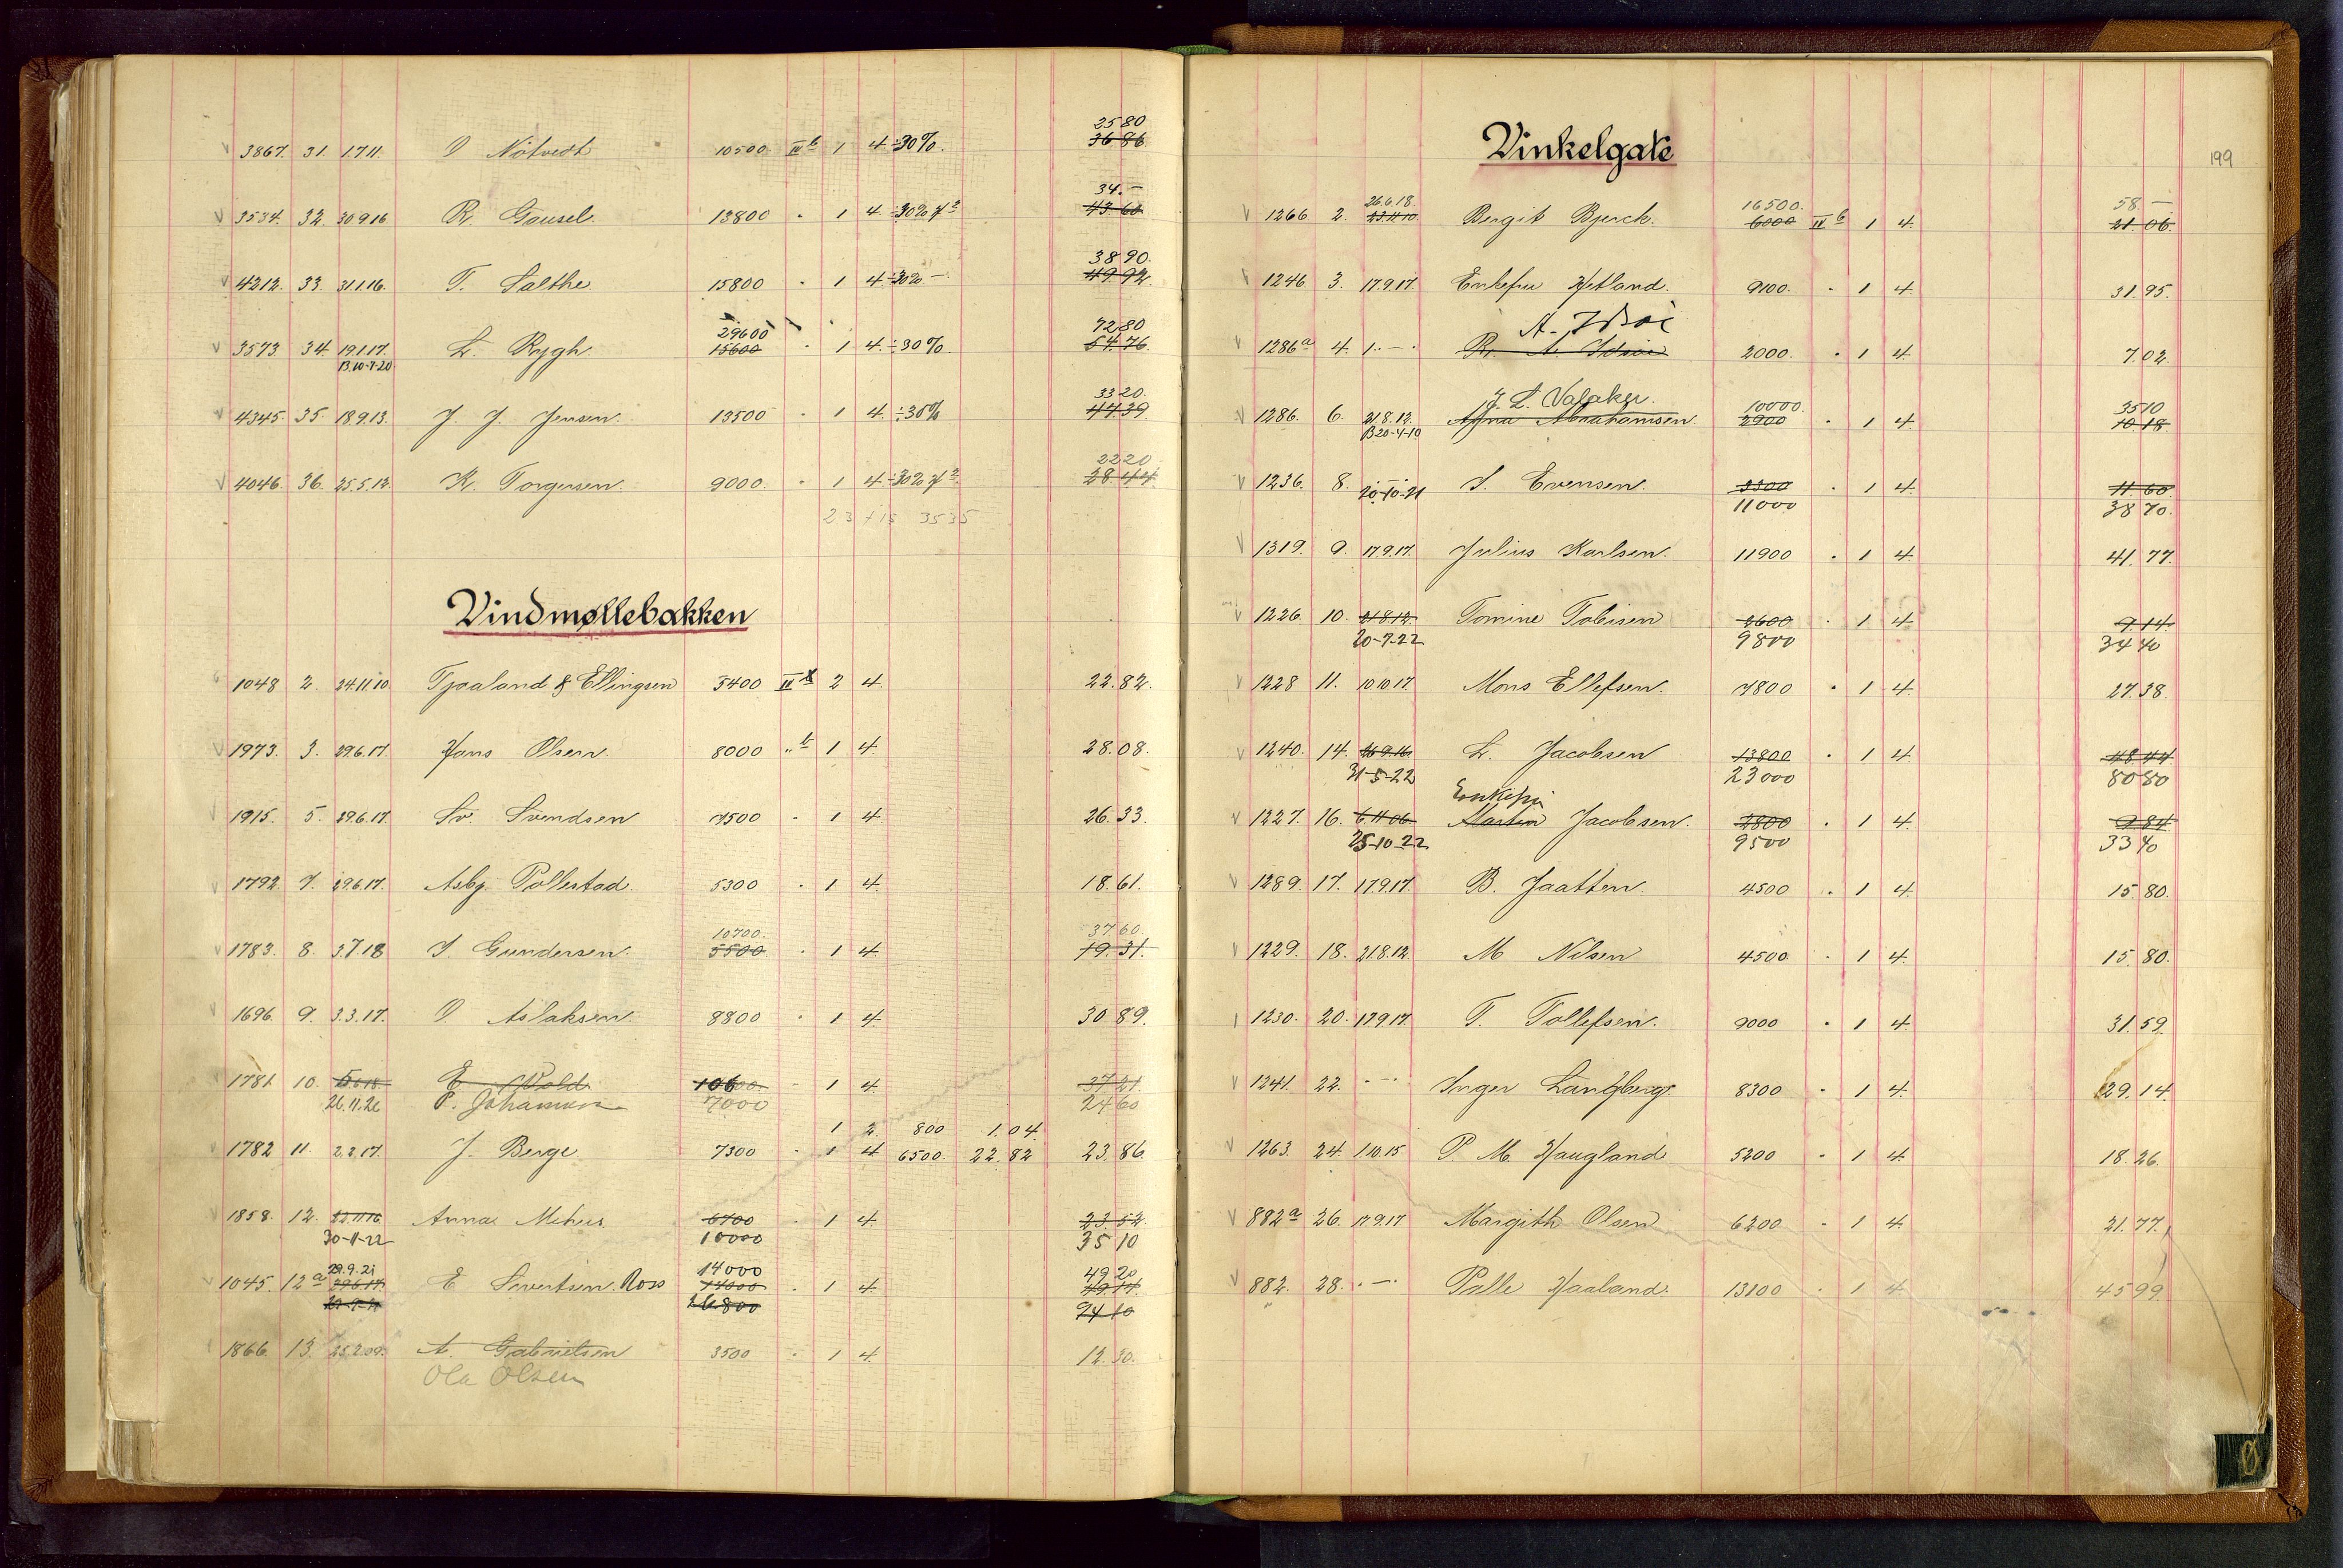 2580
3867. 31. 1.7.11. O Nötvedt 10500 IIb 1 4 ÷30% 3686
34.–
3534. 32. 30.9.16 R. Gausel. 13800 " 1 4 ÷30% 43.60
3890.
4212. 33. 31.1.16. T. Salthe 15800 " 1 4 ÷30% 4992
29600 7280
3573. 34. 19.1.17. L. Rygh. 15600 " 1 4 ÷30% 5476
B.10-7-20
3320.
4345. 35. 18.9.13. J. J. Jensen. 13500 " 1 4 ÷30% 4739
2220
4046. 36. 25.5.12. K. Torgersen. 9000. " 1 4 ÷30% 28
3535
Vindmøllebakken
1048 2. 24.11.10 Tjaaland & Ellingsen 5400 II 2 4. 22.82.
1973. 3. 29.6.17. Hans Olsen. 8000 " b 1 4. 28.08.
1915. 5. 29.6.17. Sv. Svendsen 7500 " 1 4. 26.33.
1792. 7. 29.6.17. Asbj. Pollestad. 5300 " 1 4. 18.61.
10700. 37.60.
1783. 8. 3.7.18 S. Gundersen. 5500 " 1 4. 19.31.
1696. 9. 3.3.17. O Aslaksen. 8800 " 1 4. 30 89.
1781. 10. E. Wold 10600. " 1 4. 37 21
26.11.26 P. Johannsen 7000 24 60
1 2. 800 1.04.
1782 11. 2.2.17. J. Berge 7300 " 1 4 6500. 22.82 23.86
1858. 12. 22.11.16 Anna Mehus 6700 " 1 4. 23.52
30-11-22 10000 35 10
29.9.21 14000 49 20
1045. 12a 29.6.17. E Sivertsen. Ross 14000 " 1 4. 49.14
26800 94 10
1866. 13. 25.2.09. A. Gabrielsen 3500 " 1 4. 12.30.
Ola Olsen
Vinkelgate
199
26.6.18. 16500. 58 –
1266. 2. 23.11.10 Bergit Bjerck. 6000 IIb 1 4. 21.06.
1246. 3. 17.9.17. Enkefru Hetland. 9100. " 1 4. 31.95.
A. Idsöe
1286a 4. 1. – · R. A. Idsöe 2000. " 1 4. 7.02.
J. L. Valaker. 10000. 3510
1286. 6. 21.8.12. Anna Abrahamsen 2900 " 1 4. 10 18.
B20-4-10
1236. 8. · – · S. Evensen. 3300 " 1 4. 11.60.
20-10-21 11000 38 70.
1319. 9. 17.9.17. Julius Karlsen. 11900 " 1 4. 41.77.
1226. 10. 21.8.12. Tomine Tobisen 2600 " 1 4. 9.14.
20-7-22 9800 34 40
1228 11. 10.10.17. Mons Ellefsen. 7800 " 1 4. 27.38.
1240. 14. 26.9.16 L. Jacobsen 13800 " 1 4. 48.44
31-5-22 23000 80 80
Enkefru
1227. 16. 6.11.06 Martin Jacobsen. 2800 " 1 4. 9 84
25-10-22 9500 33 40
1289. 17. 17.9.17. B. Jaatten 4500 " 1 4. 15.80.
1229. 18. 21.8.12. M Nilsen 4500 " 1 4. 15.80.
1230. 20. 17.9.17. T. Tollefsen. 9000 " 1 4. 31.59.
1241. 22. · – · Inger Langberg. 8300 " 1 4. 29.14.
1263. 24. 1.10.15 P. M. Haugland 5200 " 1 4. 18.26.
882a 26. 17.9.17 Margith Olsen 6200 " 1 4. 21.77.
882. 28. · – · Palle Haaland. 13100 " 1 4. 45 99.
Ø